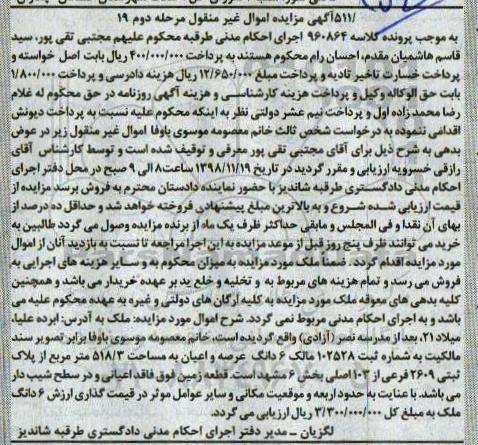 ۵۱۱/آگهی مزایده اموال غیر منقول مرحله دوم ۱۹
به موجب پرونده کلاسه ۹۶۰۸۶۴ اجرای احکام مدنی طرقبه محکوم علیهم مجتبی تقی پور، سید
قاسم هاشمیان مقدم، احسان رام محکوم هستند به پرداخت ۴۰۰/۰۰۰/۰۰۰ ریال بابت اصل خواسته و
پرداخت خسارت تاخیر تادیه و پرداخت مبلغ ۱۲/۶۵۰/۰۰۰ ریال هزینه دادرسی و پرداخت ۱/۸۰۰/۰۰۰
بابت حق الوکاله وکیل و پرداخت هزینه کارشناسی و هزینه آگهی روزنامه در حق محکوم له غلام
رضا محمد زاده اول و پرداخت نیم عشر دولتی نظر به اینکه محکوم علیه نسبت به پرداخت دیونش
اقدامی ننموده به درخواست شخص ثالث خانم معصومه موسوی باوفا اموال غیر منقول زیر در عوض
بدهی به شرح ذیل برای آقای مجتبی تقی پور معرفی و توقیف شده است و توسط کارشناس آقای
رازقی خسرویه ارزیابی و مقرر گردید در تاریخ ۱۳۹۸/۱۱/۱۹ ساعت ۸ الی ۹ صبح در محل دفتر اجرای
احکام مدنی دادگستری طرقبه شاندیز با حضور نماینده دادستان محترم به فروش برسد مزایده از
قیمت ارزیابی شده شروع و به بالاترین مبلغ پیشنهادی فروخته خواهد شد و حداقل ده درصد از
بهای آن نقدا و فی المجلس و مابقی حداکثر ظرف یک ماه از برنده مزایده وصول می گردد طالبین به
خرید می توانند ظرف پنج روز قبل از موعد مزایده به این اجرا مراجعه تا نسبت به بازدید آنان از اموال
مورد مزایده اقدام گردد. ضمناً ملک مورد مزایده به میزان محکوم به و سایر هزینه های اجرایی به
فروش می رسد و تمام هزینه های مربوط به و تخلیه و خلع ید بر عهده خریدار می باشد و همچنین
کلیه بدهی های معوقه ملک مورد مزایده به کلیه ارگان های دولتی و غیره به عهده محکوم علیه می
باشد و به اجرای احکام مدنی مربوط نمی گردد. شرح اموال مورد مزایده: ملک به آدرس: ابرده علیا،
میلاد ۲۱، بعد از مدرسه نصر (آزادی) واقع گردیده است. خانم معصومه موسوی باوفا برابر تصویر سند
مالکیت به شماره ثبت ۱۰۲۵۲۸ مالک ۶ دانگ عرصه و اعیان به مساحت ۵۱۸/۳ متر مربع از پلاک
ثبتی ۲۶۰۹ فرعی از ۱۰۳ اصلی بخش ۶ مشهد است. قطعه زمین فوق فاقد اعیانی و در سطح شیب دار
می باشد. با عنایت به حدود اربعه و موقعیت مکانی و سایر عوامل موثر در قیمت گذاری ارزش ۶ دانگ
ملک به مبلغ کل ۳/۳۰۰/۰۰۰/۰۰۰ ریال ارزیابی می گردد.
لگزیان - مدیر دفتر اجرای احکام مدنی دادگستری طرقبه شاندیز